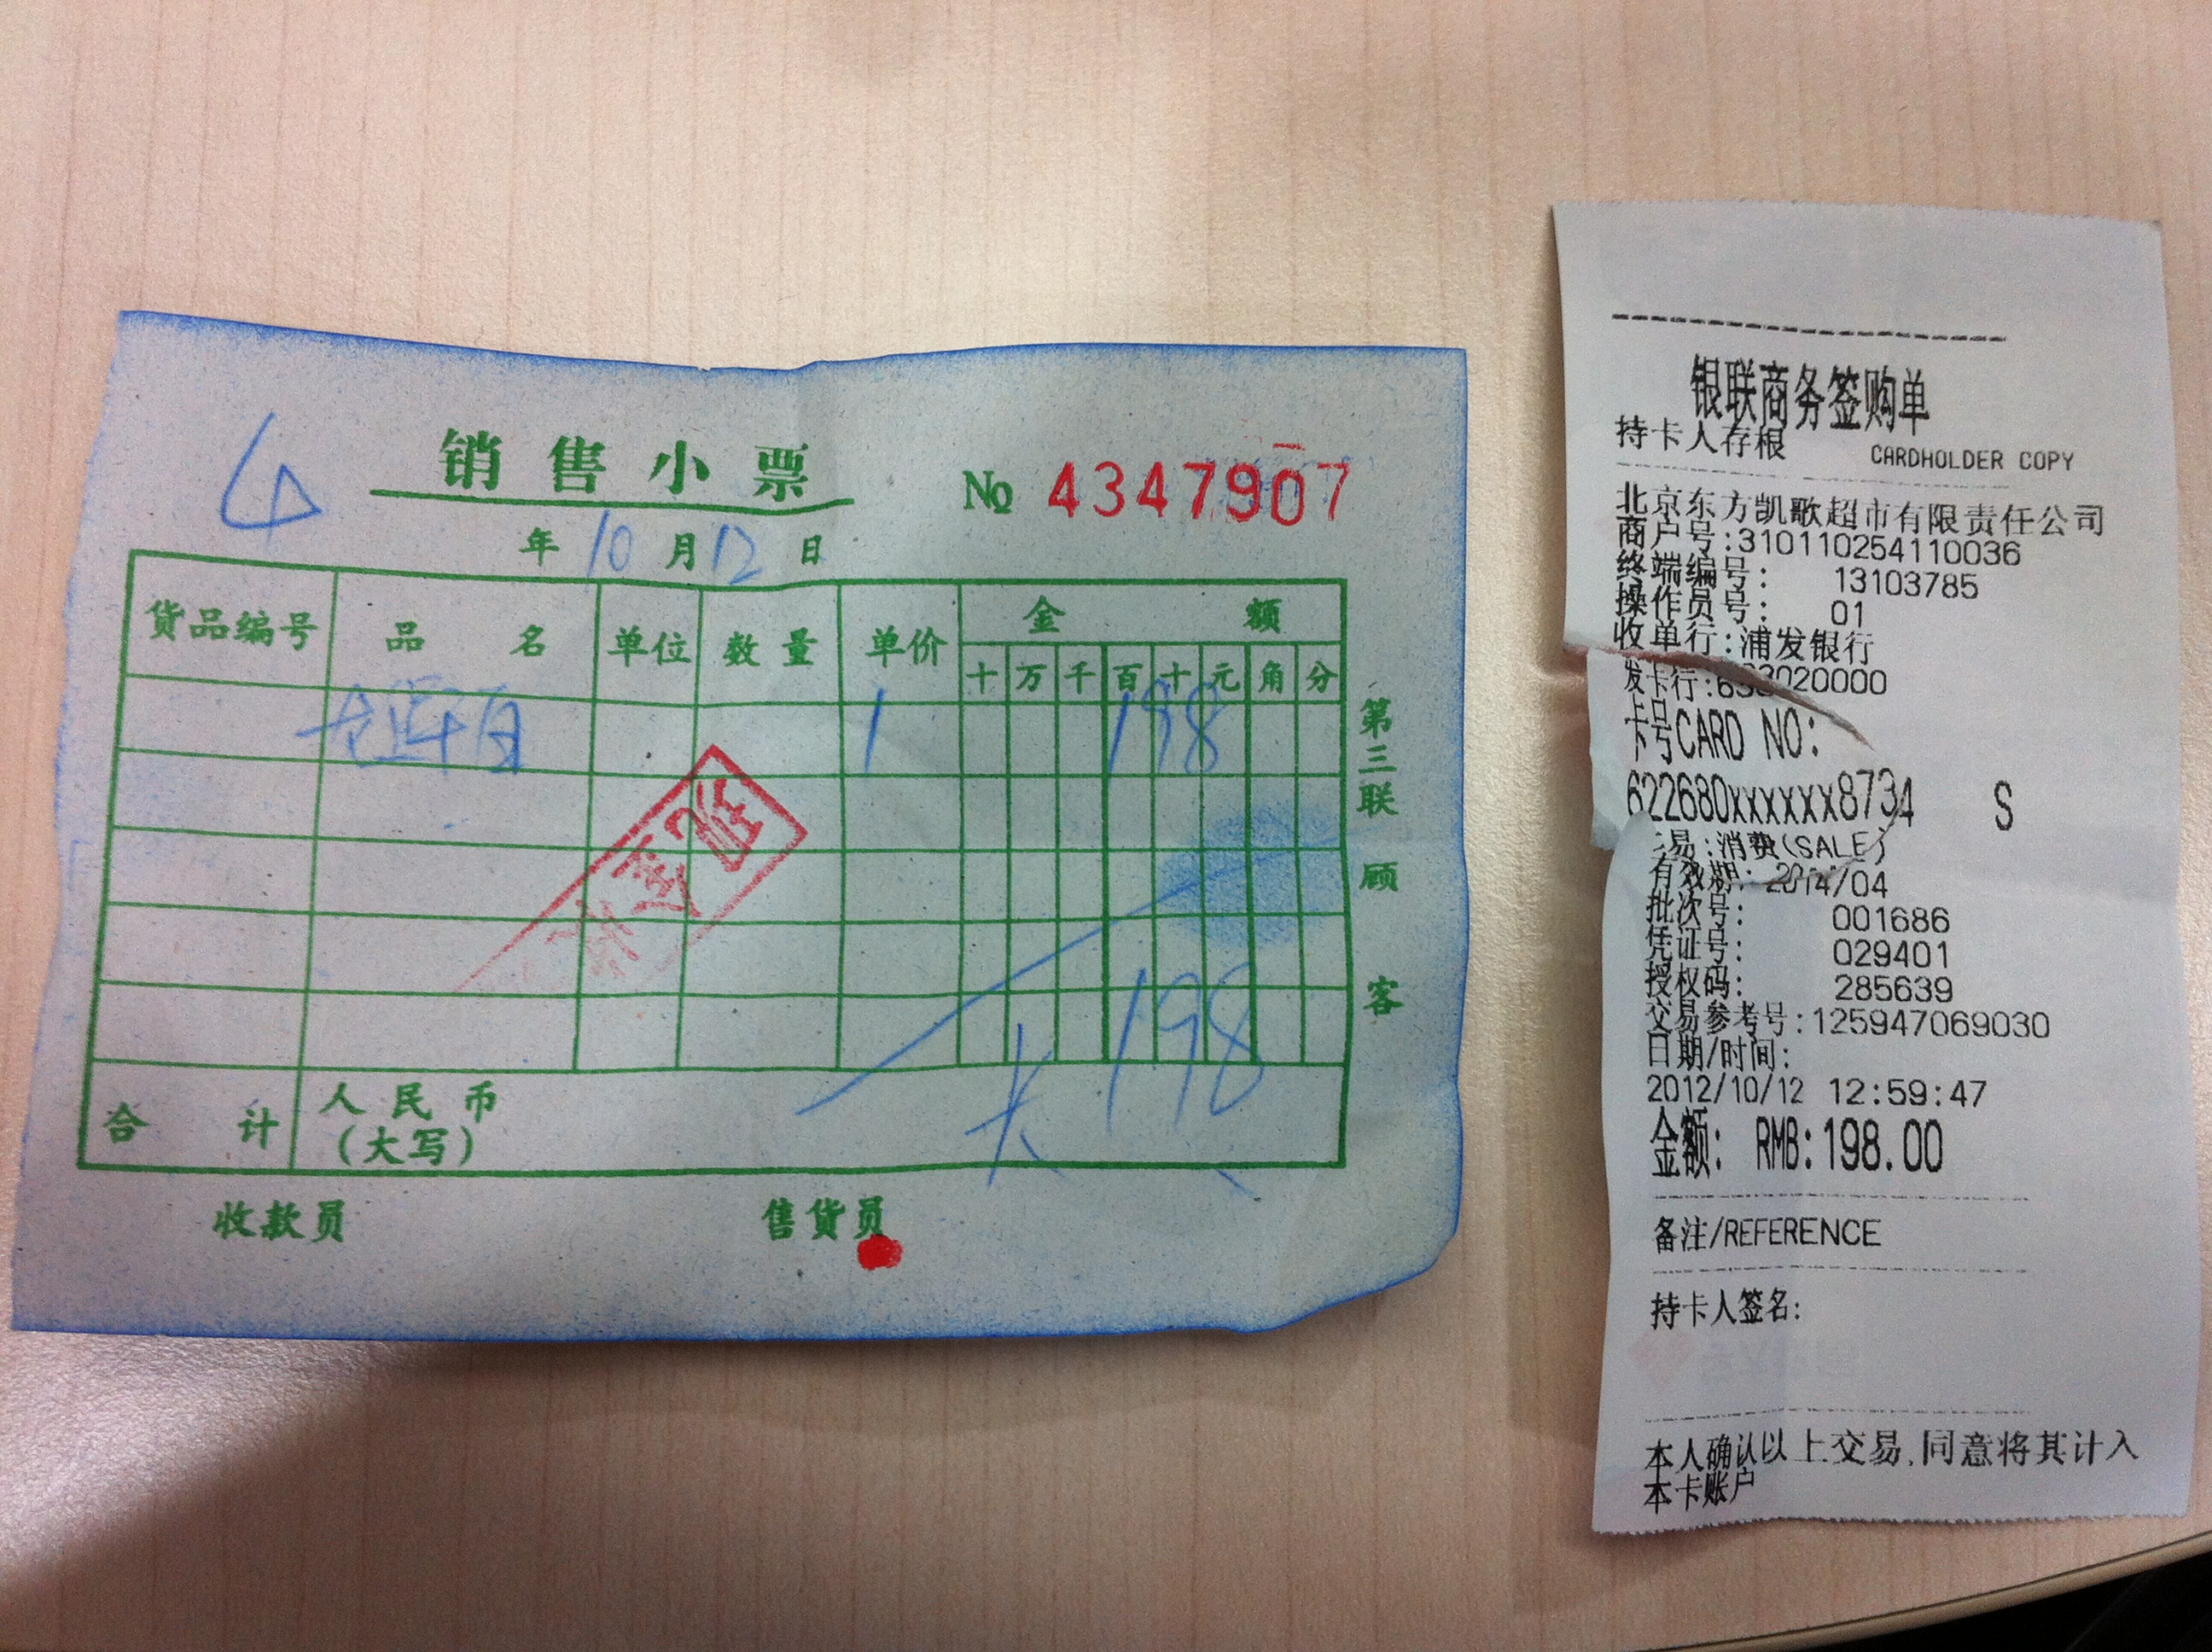 销售小票
№ 4347907
年 10 月 12 日
货品编号 品名 单位 数量 单价 金额
十 万 千 百 十 元 角 分
1 198
198
合计 人民币（大写）
收款员 售货员
第三联 顾客
银联商务签购单
持卡人存根 CARDHOLDER COPY
北京东方凯歌超市有限责任公司
商户号:310110254110036
终端编号: 13103785
操作员号: 01
收单行:浦发银行
发卡行:63020000
卡号CARD NO:
622680XXXXXX8734 S
消费(SALE)
有效期: 2014/04
批次号: 001686
凭证号: 029401
授权码: 285639
交易参考号:125947069030
日期/时间:
2012/10/12 12:59:47
金额: RMB:198.00
备注/REFERENCE
持卡人签名:
本人确认以上交易,同意将其计入
本卡账户